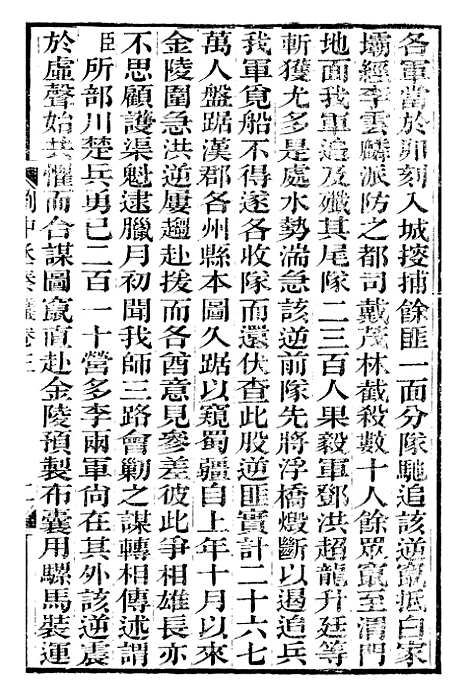 各軍當於卯刻入城搜捕餘匪一面分隊馳追該逆竄抵白家
壩經李雲麟派防之都司戴茂林截殺數十人餘眾竄至渭門
地面我軍追及殲其尾隊二三百人果毅軍鄧洪超龍升廷等
斬獲尤多是處水勢湍急該逆前隊先將浮橋燬斷以遏追兵
我軍覓船不得遂各收隊而還伏查此股逆匪實計二十六七
萬人盤踞漢郡各州縣本圖久踞以窺蜀疆自上年十月以來
金陵圍急洪逆屢趨赴援而各酋意見參差彼此爭相雄長亦
不思顧護渠魁逮臘月初聞我師三路會勦之謀轉相傳述謂
臣所部川楚兵勇已二百一十營多李兩軍尚在其外該逆震
於虛聲始共懼而合謀圖竄直赴金陵預製布囊用騾馬裝運
劉中丞奏議卷三